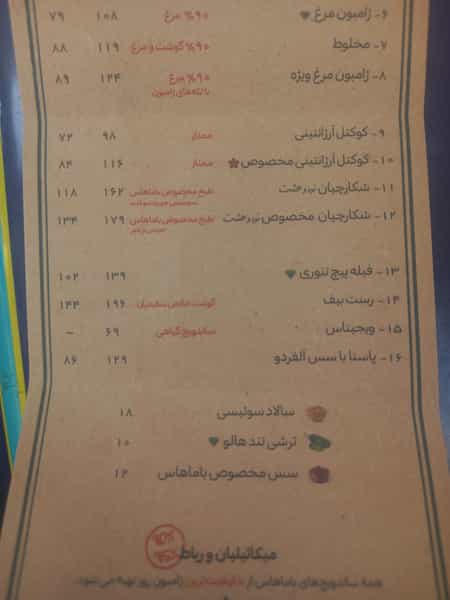 ۶- ژامبون مرغ ۹۰% مرغ ۱۰۸ ۷۹
۷- مخلوط ۹۰% گوشت و مرغ ۱۱۹ ۸۸
۸- ژامبون مرغ ویژه ۹۰% مرغ ۱۲۴ ۸۹
با تکه‌های ژامبون
۹- کوکتل آرژانتینی ممتاز ۹۸ ۷۲
۱۰- کوکتل آرژانتینی مخصوص ممتاز ۱۱۶ ۸۴
۱۱- شکارچیان نیم‌رخت طبخ مخصوص باماهاس ۱۶۲ ۱۱۸
۱۲- شکارچیان مخصوص نیم‌رخت طبخ مخصوص باماهاس ۱۷۹ ۱۳۴
۱۳- فیله پیچ تنوری ۱۳۹ ۱۰۲
۱۴- رست بیف گوشت خالص سفیدران ۱۹۶ ۱۴۴
۱۵- ویجیتاس ساندویچ گیاهی ۶۹ –
۱۶- پاستا با سس آلفردو ۱۲۹ ۸۶
سالاد سوئیسی ۱۸
ترشی تند هالو ۱۰
سس مخصوص باماهاس ۱۲
میکائیلیان و رباط
همه ساندویچ‌های باماهاس از با کیفیت‌ترین ژامبون روز تهیه می شود.